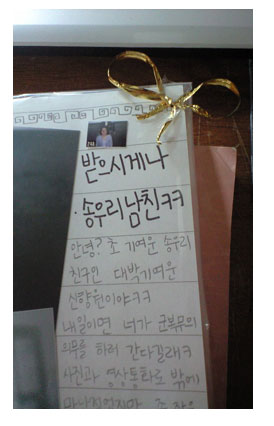 받으시게나
·송우리남친ㅋㅋ
안녕? 초 기여운 송우리
친구인 대박기여운
신향원이야ㅋㅋ
내일이면 너가 군복무의
의무를 하러 간다길래ㅋ
사진과 영상통화로 밖에